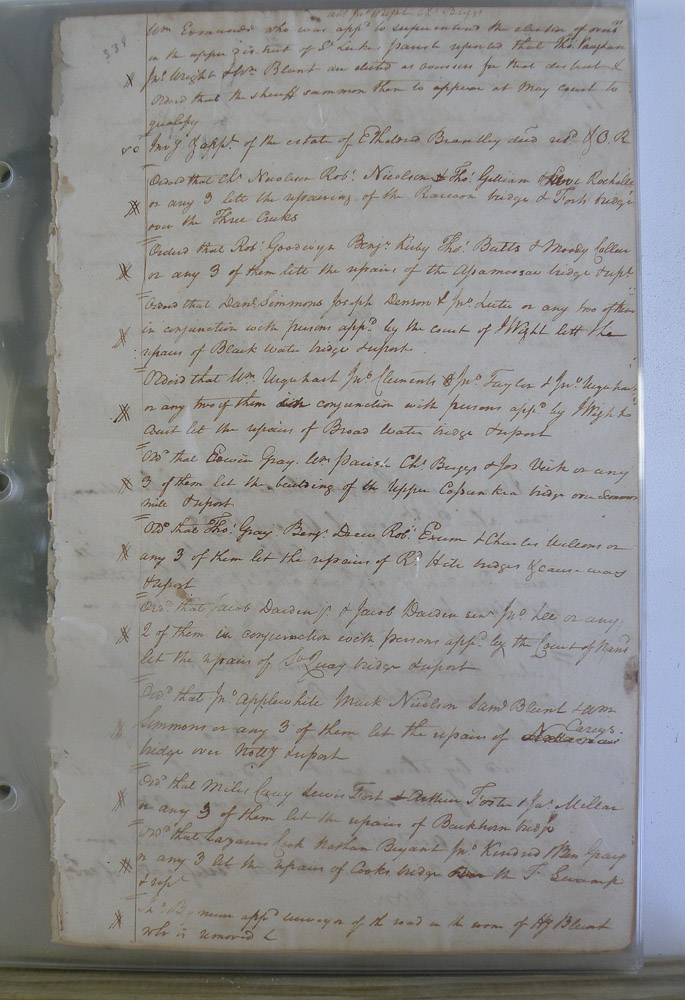 338
Wm Edmunds who was appd to superintend the election of overs
in the upper district of St Lukes parish reported that Thos Vaughan
Jno Wright & Wm Blunt are elected as overseers for that district &
Ordered that the sheriff summon them to appear at May Court to
qualify
Invy & appt of the estate of Etheldred Brantley decd retd & O. R.
Ordered that Chs Nicolson Robt Nicolson & Thos Gilliam & Rochelle
or any 3 lett the repairing of the Raccoon bridge & Forts bridge
over the Three Creeks
Ordered that Robt Goodwyn Benjn Kirby Thos Butts & Moody
or any 3 of them lett the repairs of the Apamoosac bridge & rept
Ordered that Danl Simmons Joseph Denson & Jno Luter or any two of them
in conjunction with persons appd by the court of I Wight lett the
repairs of Black Water bridge & report
Ordered that Wm Urquhart Jno Clements & Jno Taylor & Jno Urquhart
or any two of them in conjunction with persons appd by I Wight
Court let the repairs of Broad Water bridge & report
Ordd that Edwin Gray Wm Parish Chs Briggs & Jos Vick or any
3 of them let the building of the Upper bridge over
mill & report
Ordd that Thos Gray Benjn Drew Robt & Charles or
any 3 of them let the repairs of Rd Hite bridges & cause ways
& report
Ordd that Jacob Darden jr & Jacob Darden senr Jno Lee or any
2 of them in conjunction with persons appd by the Court of Nansd
let the repairs of So Quay bridge & report
Ordd that Jno Applewhite Mark Nicolson Saml Blunt & Wm
Simmons or any 3 of them let the repairs of Careys
bridge over Notty & report
Ordd that Miles Cary Lewis Fort & Arthur Foster & Ja. Millar
or any 3 of them let the repairs of Buckhorn bridge
Ordd that Lazarus Cook Nathan Bryant Jno Kindred & Ben Gray
or any 3 let the repairs of Cooks bridge the Swamp
& rept
Jno Bynum appd surveyor of the road in the room of Hy Blunt
who is removed